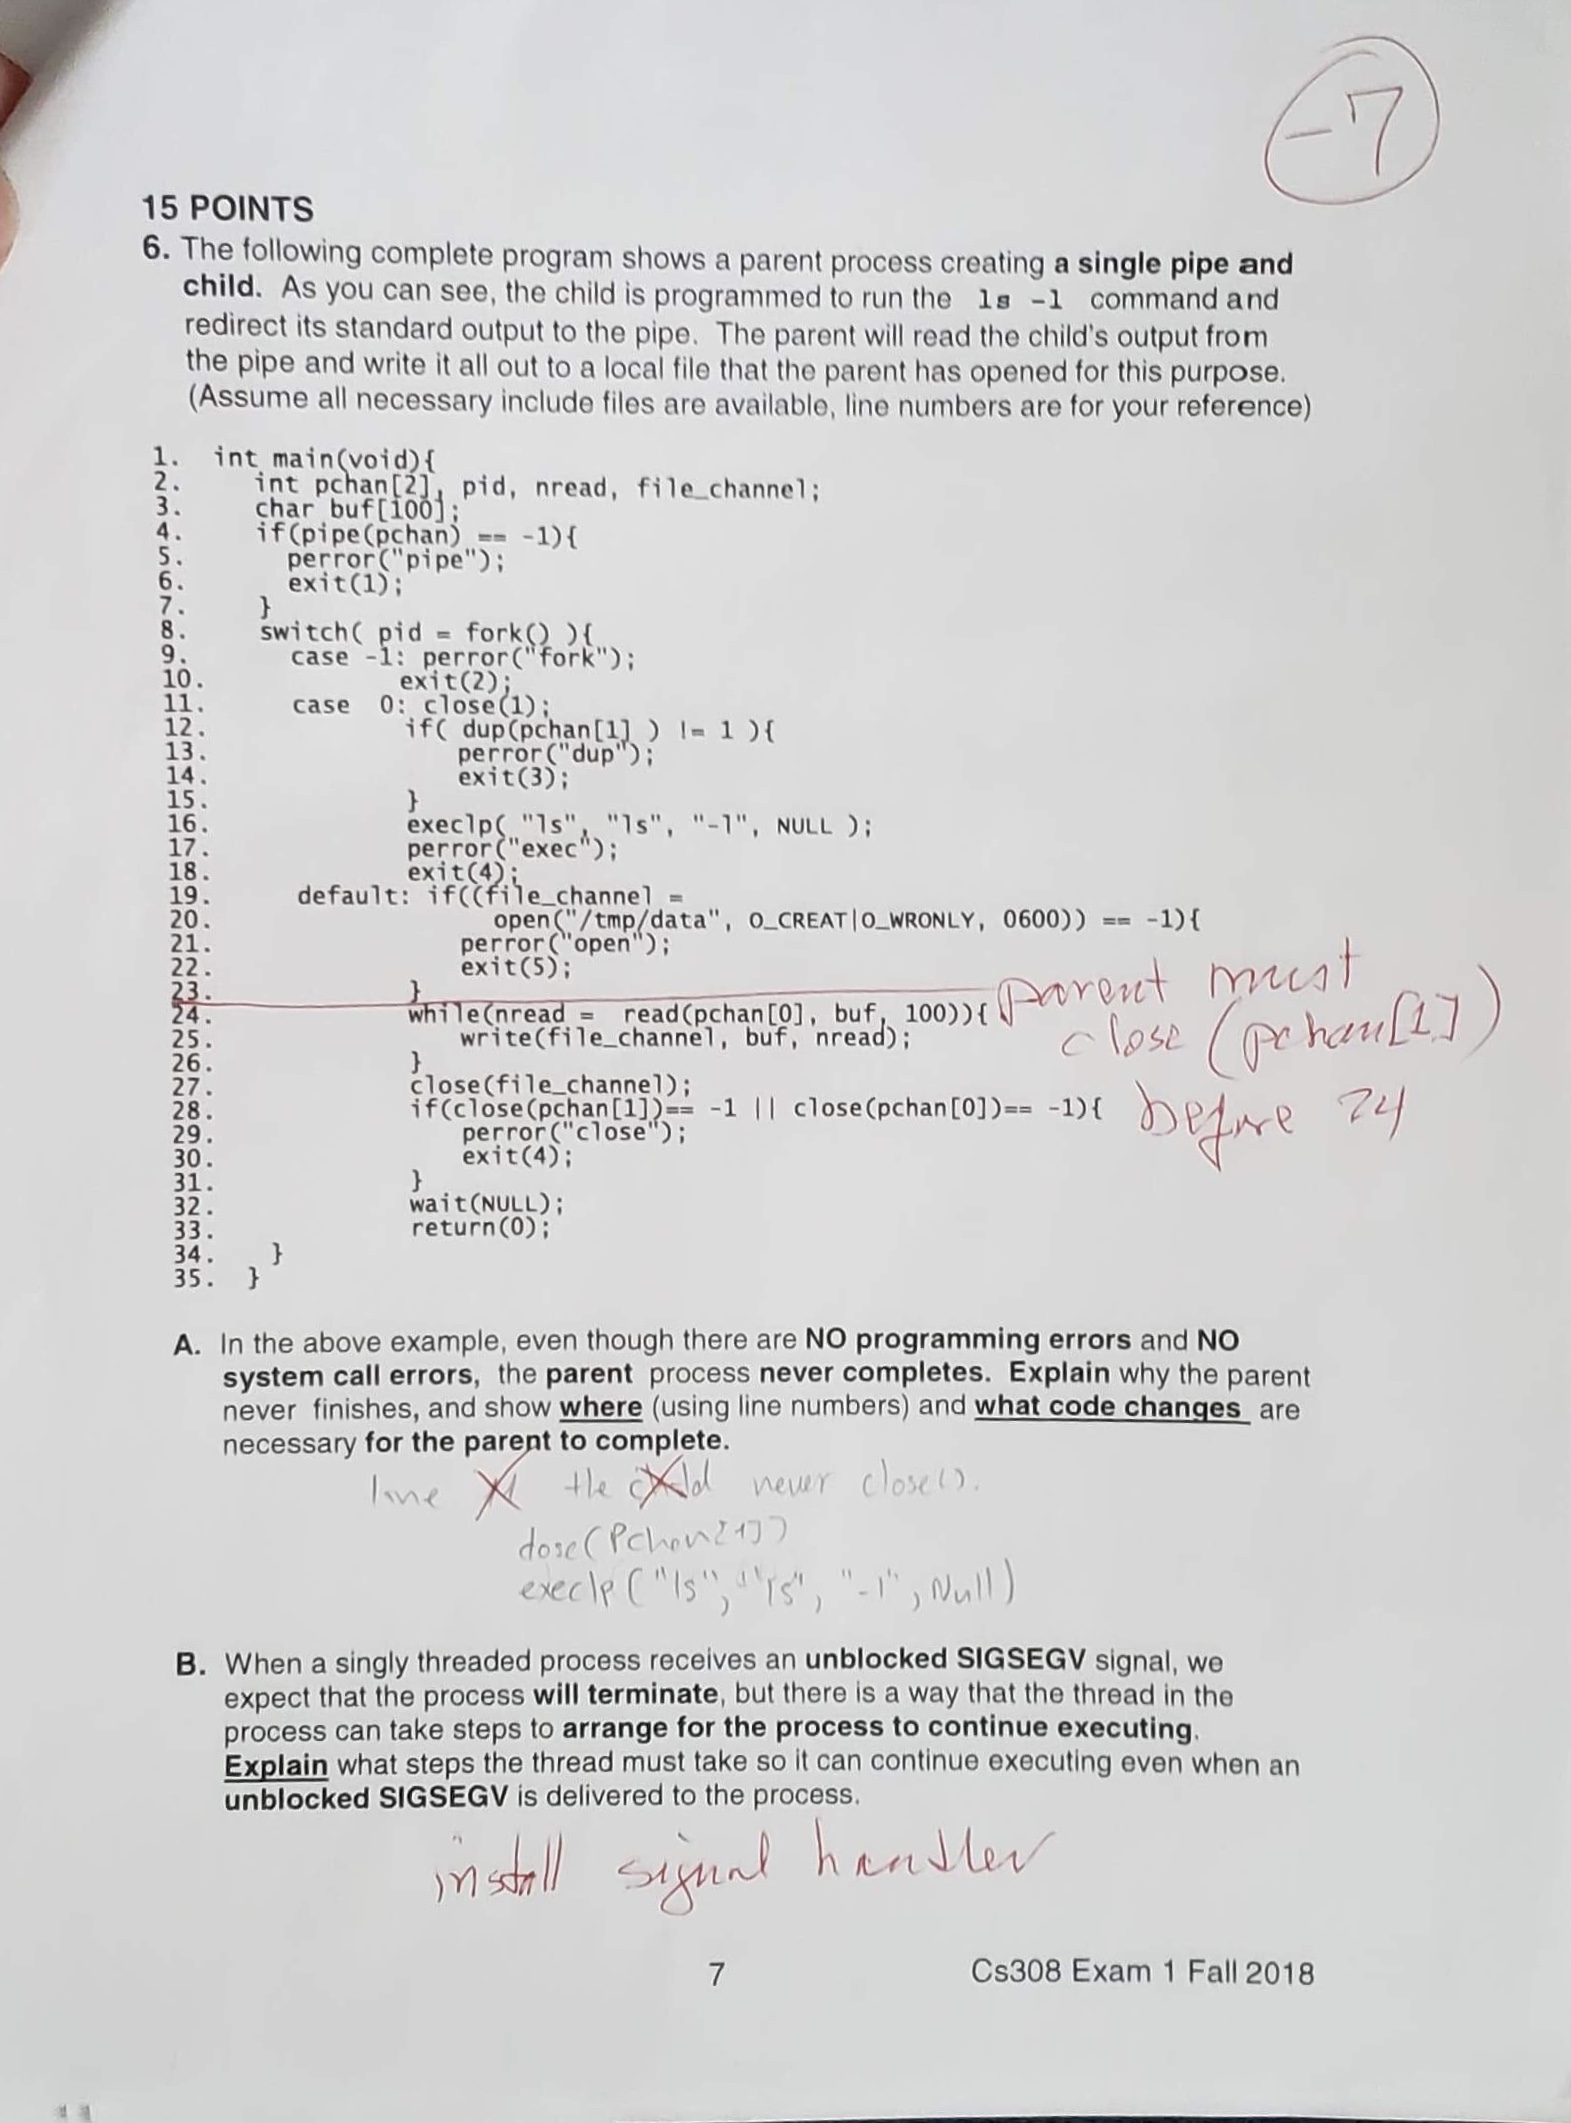 -7
15 POINTS
6. The following complete program shows a parent process creating a single pipe and
child. As you can see, the child is programmed to run the ls -l command and
redirect its standard output to the pipe. The parent will read the child's output from
the pipe and write it all out to a local file that the parent has opened for this purpose.
(Assume all necessary include files are available, line numbers are for your reference)
1. int main(void){
2. int pchan[2], pid, nread, file_channel;
3. char buf[100];
4. if(pipe(pchan) == -1){
5. perror("pipe");
6. exit(1);
7. }
8. switch( pid = fork() ){
9. case -1: perror("fork");
10. exit(2);
11. case 0: close(1);
12. if( dup(pchan[1] ) != 1 ){
13. perror("dup");
14. exit(3);
15. }
16. execlp( "ls", "ls", "-l", NULL );
17. perror("exec");
18. exit(4);
19. default: if((file_channel =
20. open("/tmp/data", O_CREAT|O_WRONLY, 0600)) == -1){
21. perror("open");
22. exit(5);
23. }
parent must
24. while(nread = read(pchan[0], buf, 100)){
close (pchan[1])
25. write(file_channel, buf, nread);
26. }
27. close(file_channel);
28. if(close(pchan[1])== -1 || close(pchan[0])== -1){
before 24
29. perror("close");
30. exit(4);
31. }
32. wait(NULL);
33. return(0);
34. }
35. }
A. In the above example, even though there are NO programming errors and NO
system call errors, the parent process never completes. Explain why the parent
never finishes, and show where (using line numbers) and what code changes are
necessary for the parent to complete.
line the child never close().
close(Pchan[1])
execlp("ls", "ls", "-l", Null)
B. When a singly threaded process receives an unblocked SIGSEGV signal, we
expect that the process will terminate, but there is a way that the thread in the
process can take steps to arrange for the process to continue executing.
Explain what steps the thread must take so it can continue executing even when an
unblocked SIGSEGV is delivered to the process.
install signal handler
7
Cs308 Exam 1 Fall 2018